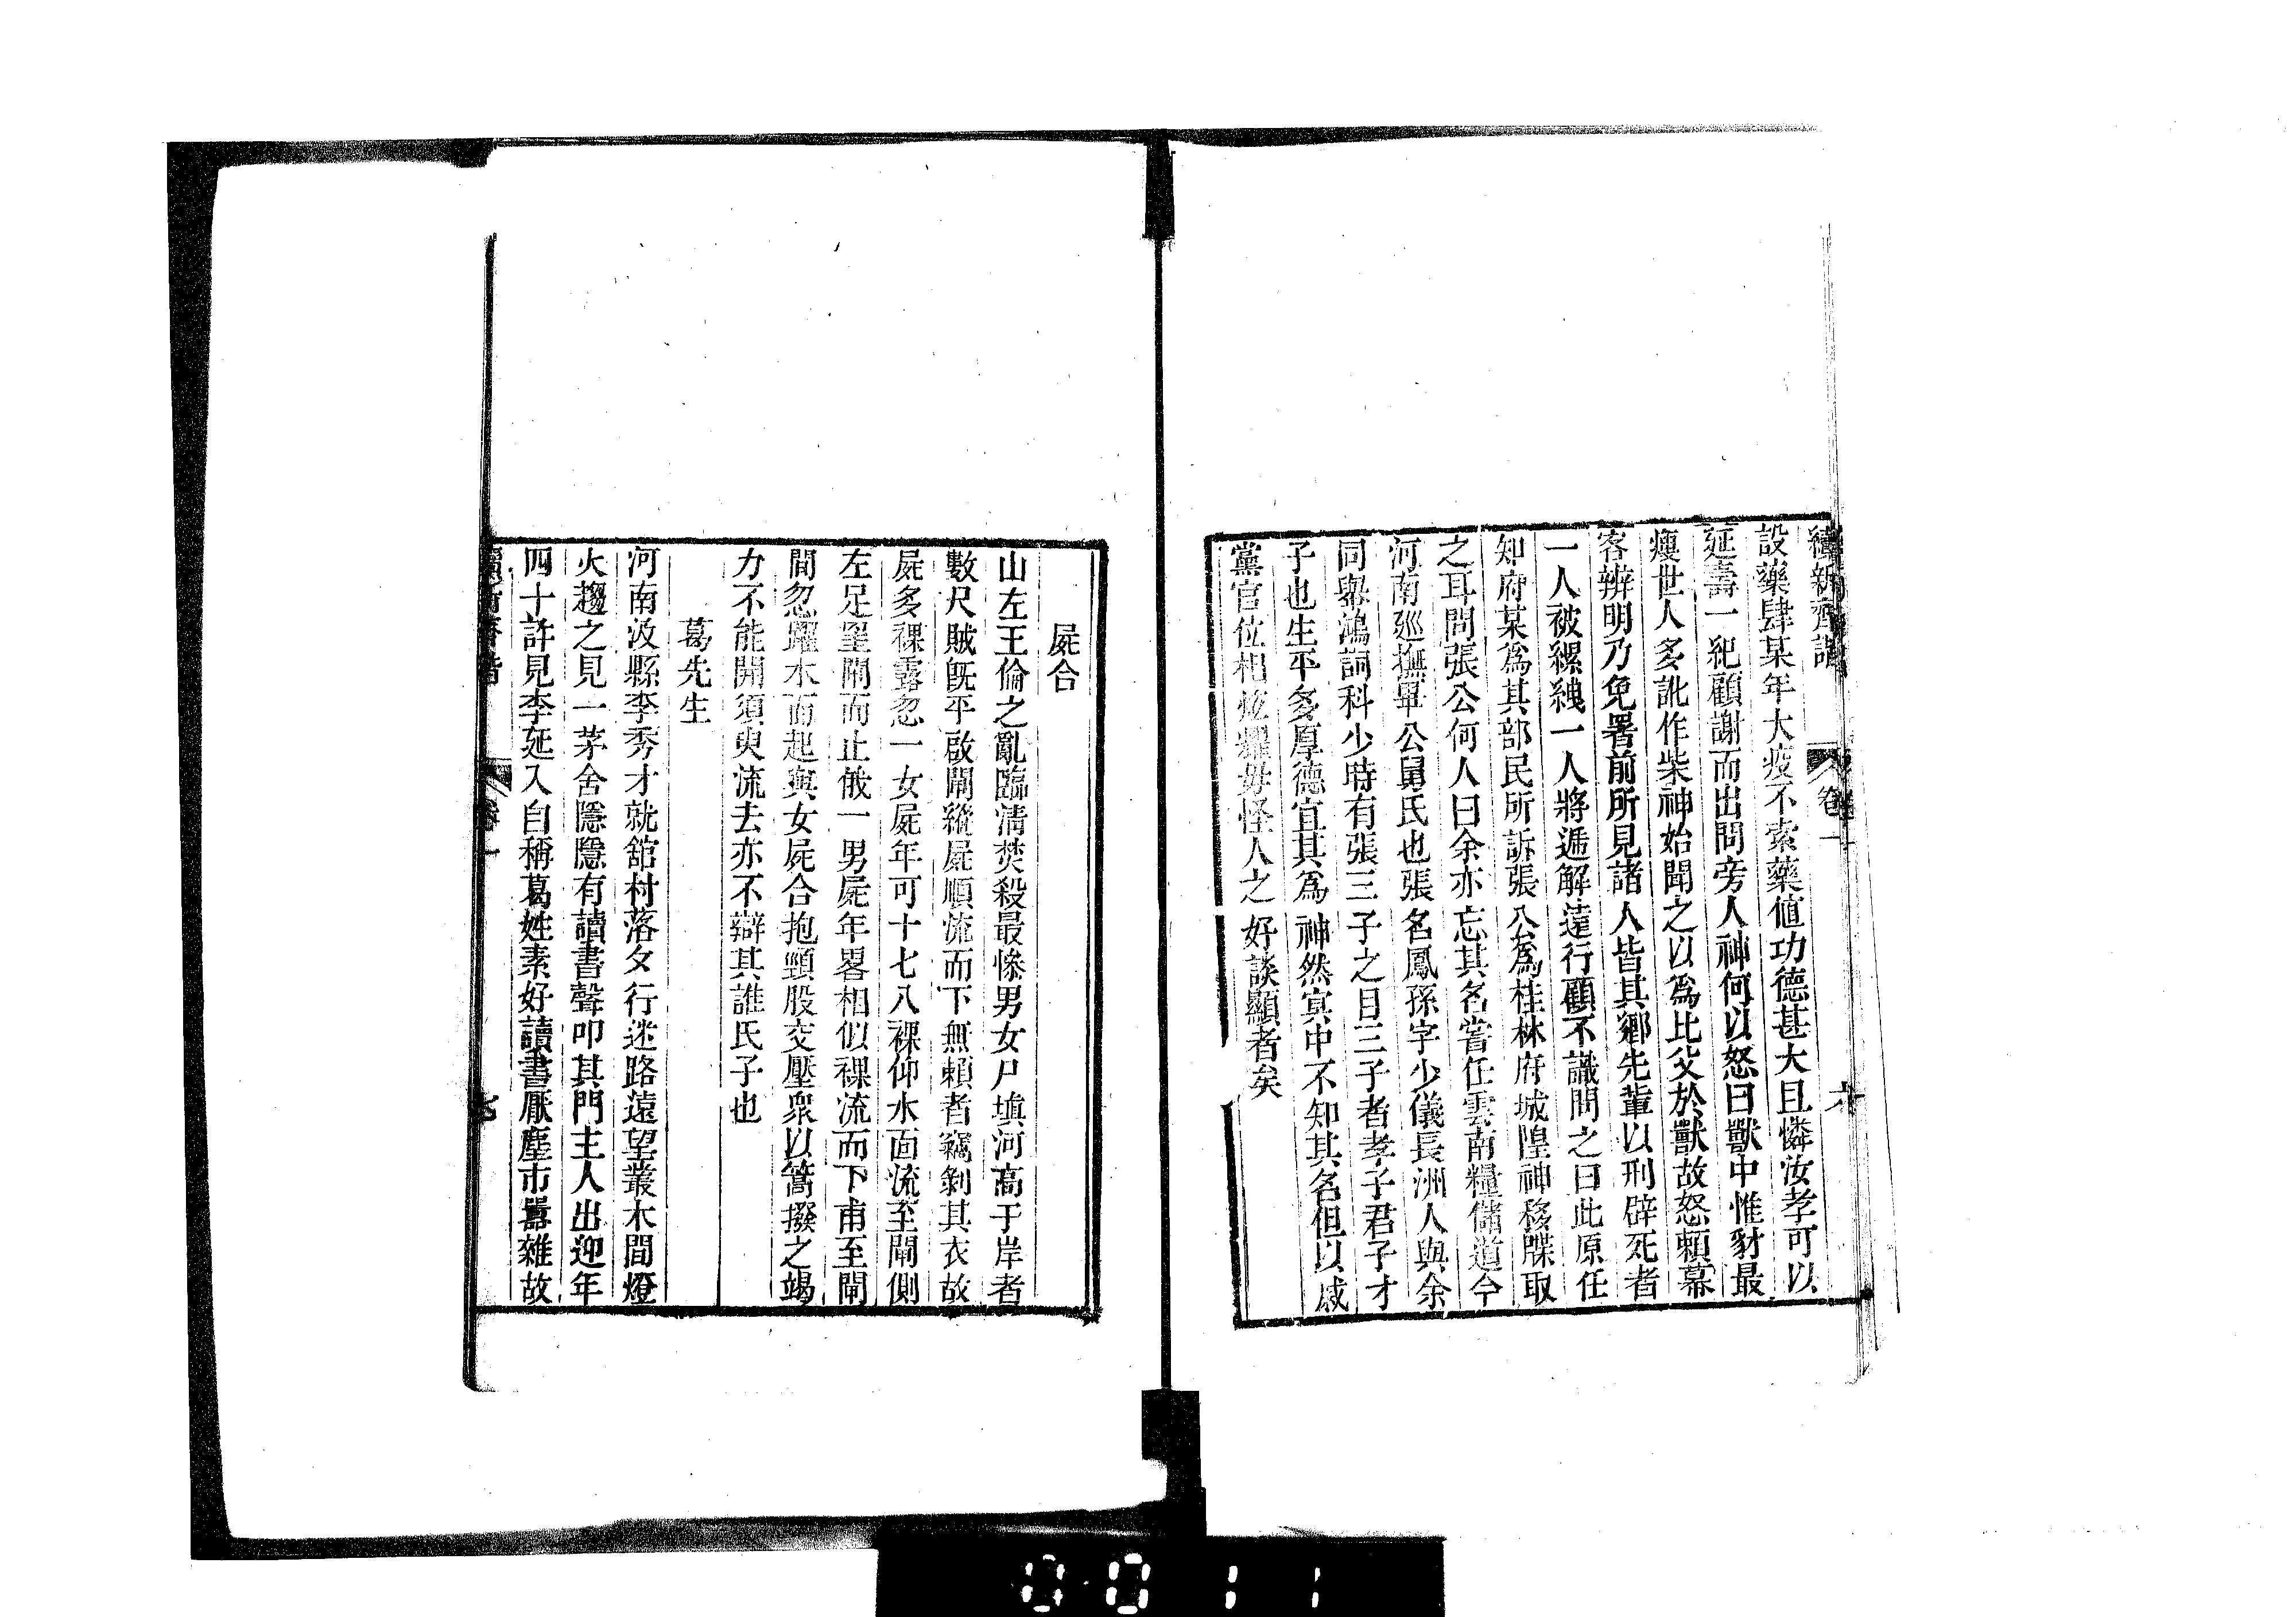 續新齊諧　卷一　六
設藥肆某年大疫不索藥値功德甚大且憐汝孝可以
延壽一紀顧謝而出問旁人神何以怒曰獸中惟豺最
瘦世人多訛作柴神始聞之以爲比父於獸故怒賴幕
客辨明乃免署前所見諸人皆其鄉先輩以刑辟死者
一人被縲絏一人將遞解遠行顧不識問之曰此原任
知府某爲其部民所訴張公爲桂林府城隍神移牒取
之耳問張公何人曰余亦忘其名嘗任雲南糧儲道今
河南廵撫畢公舅氏也張名鳳孫字少儀長洲人與余
同舉鴻詞科少時有張三子之目三子者孝子君子才
子也生平多厚德宜其爲神然冥中不知其名但以戚
黨官位相炫耀毋怪人之好談顯者矣
屍合
山左王倫之亂臨清焚殺最慘男女尸塡河高于岸者
數尺賊旣平啟閘縱屍順流而下無賴者竊剝其衣故
屍多裸露忽一女屍年可十七八裸仰水面流至閘側
左足罣閘而止俄一男屍年畧相似裸流而下甫至閘
間忽躍水而起與女屍合抱頸股交壓衆以篙撥之竭
力不能開須臾流去亦不辯其誰氏子也
葛先生
河南汲縣李秀才就舘村落夕行迷路遠望叢木間燈
火趨之見一茅舍隱隱有讀書聲叩其門主人出迎年
四十許見李延入自稱葛姓素好讀書厭塵市囂雜故
續新齊諧　卷一　七
0011